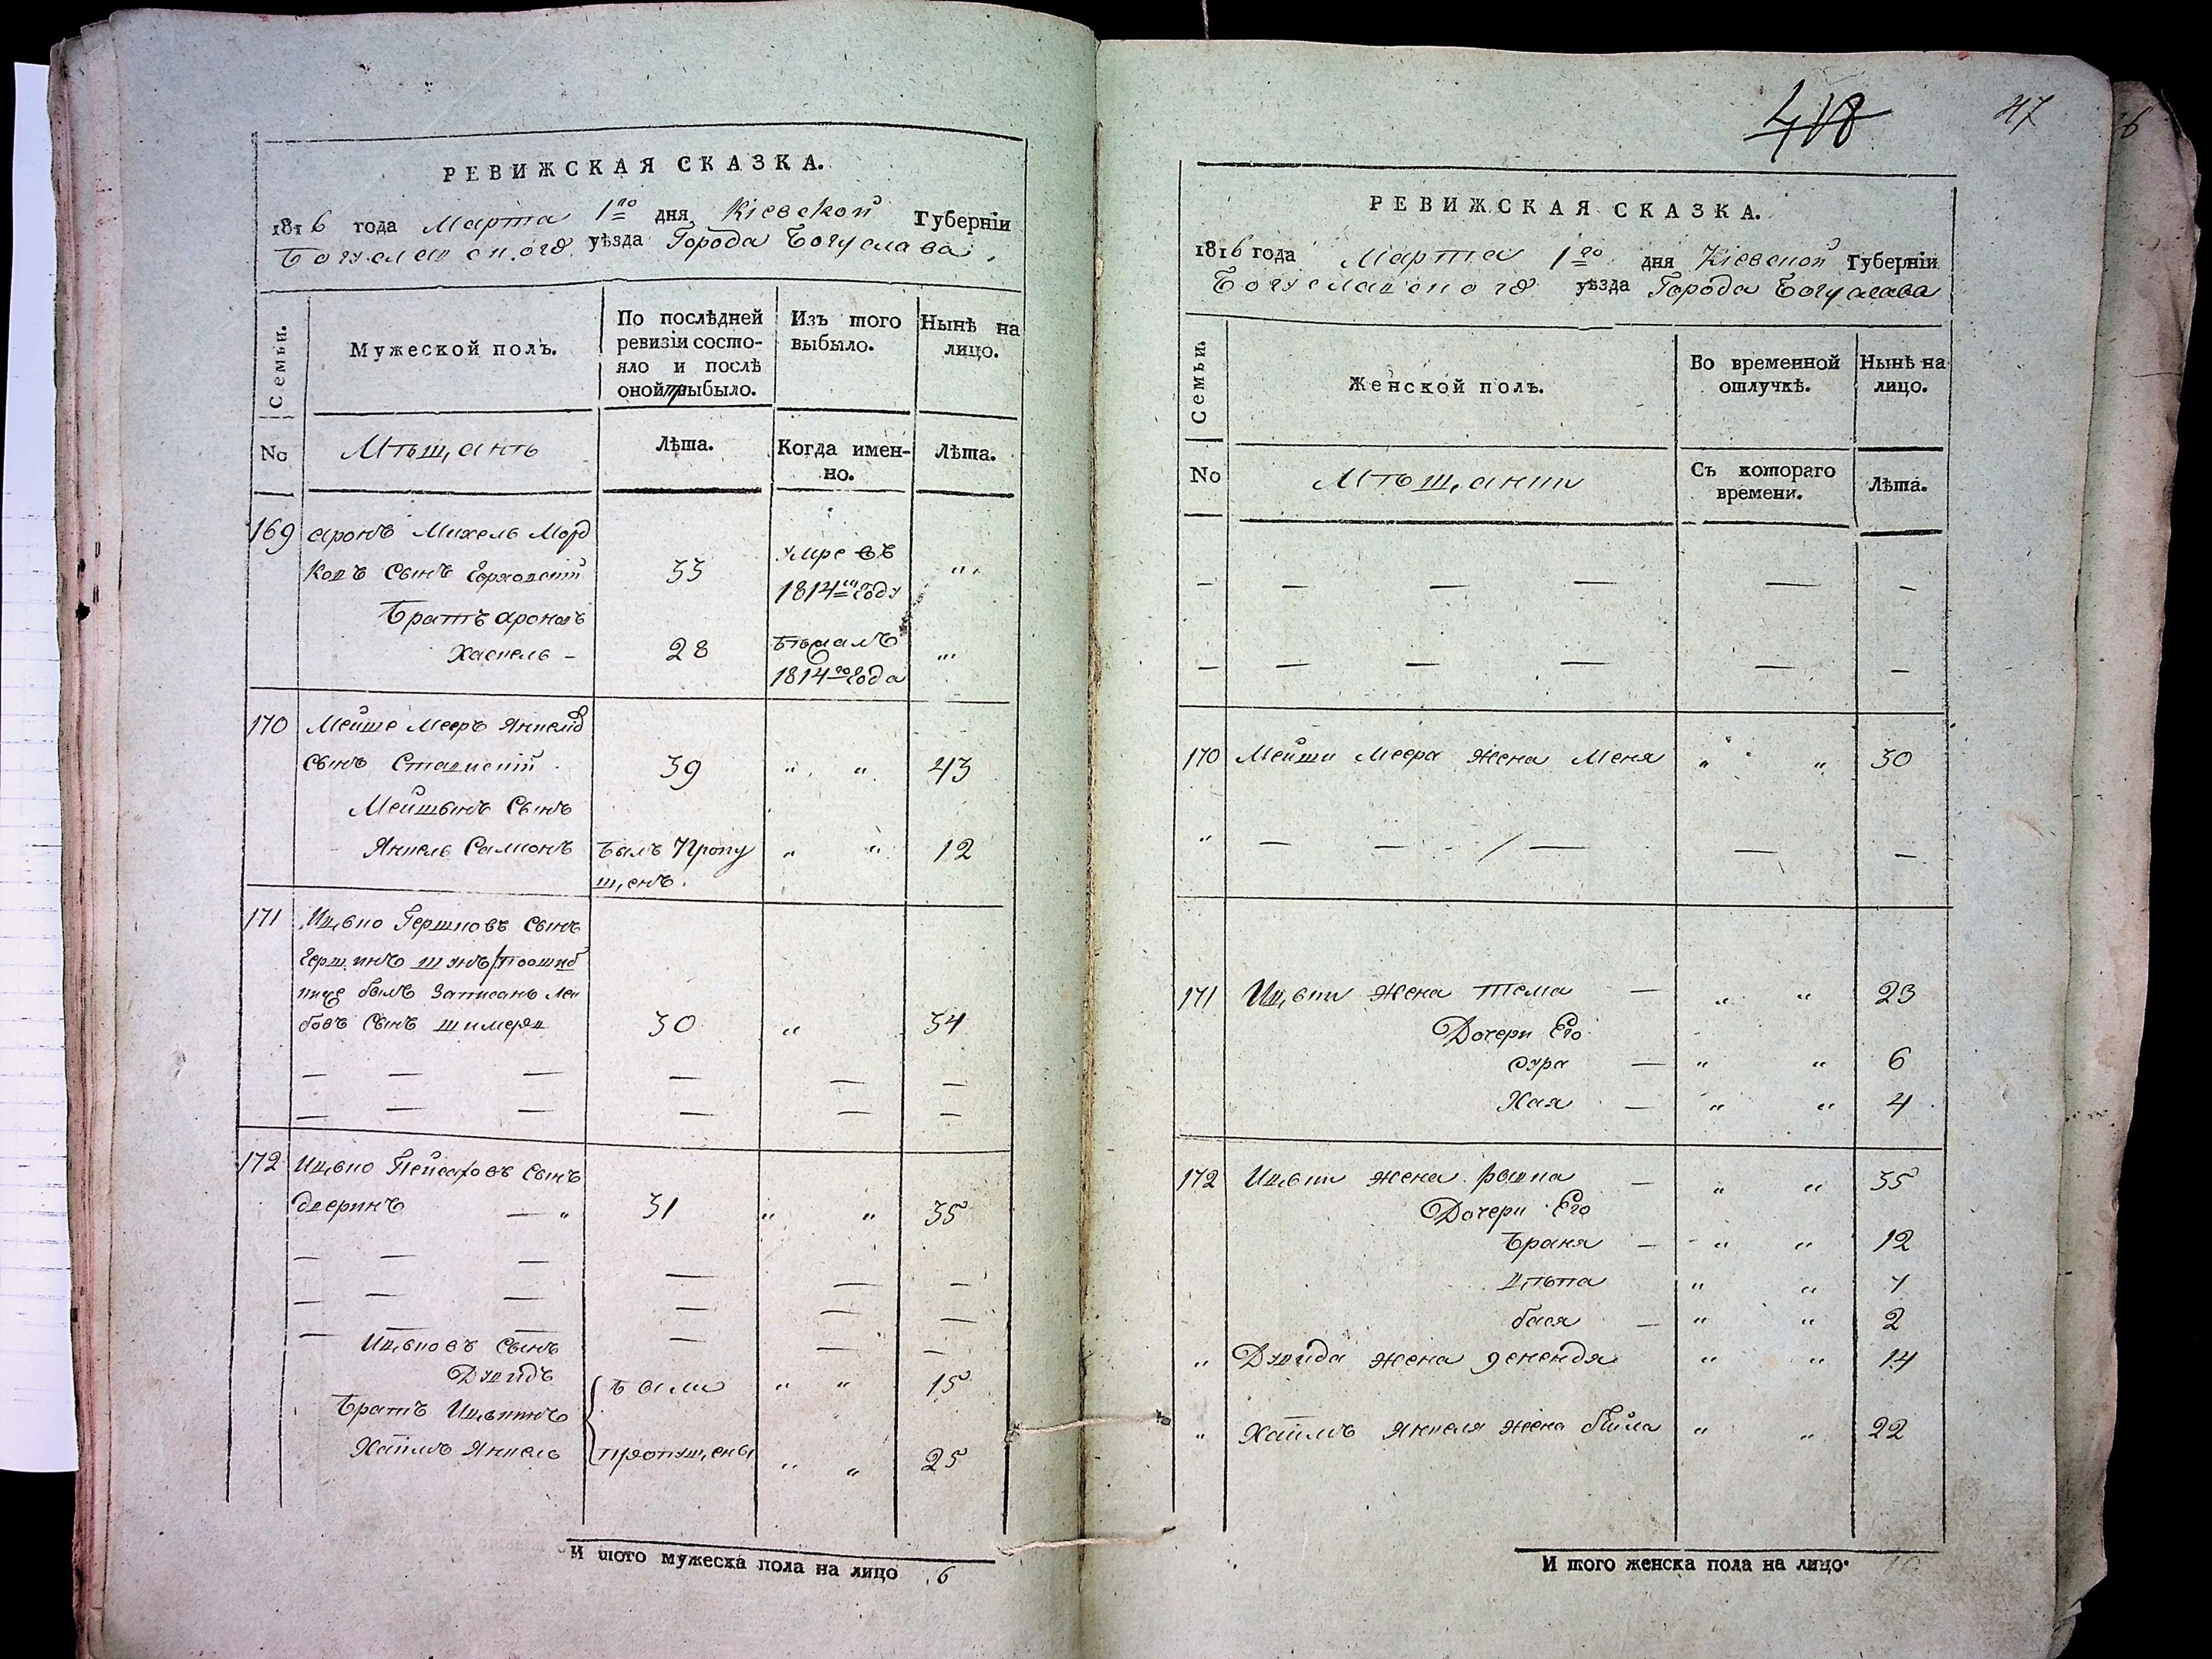 418
47
РЕВИЖСКАЯ СКАЗКА.
1816 года Марта 1го дня Кіевской Губерніи
Богуславского уѣзда Города Богуслава.
Семьи.
Мужеской полъ.
По послѣдней
ревизіи состо-
яло и послѣ
оной прибыло.
Изъ того
выбыло.
Нынѣ на
лицо.
No
Мѣщанѣ
Лѣта.
Когда имен-
но.
Лѣта.
169 Аронъ Михель Морд
ковъ Сынъ 33
умре въ
1814м году
БратъАроновъ
Хаскель - 28
Бѣжалъ
1814го года
170 Мейше Мееръ Янкелев
Сынъ Ставискій 39 " " 43
Мейшынъ Сынъ
Янкель Самсонъ Былъ Пропу " " 12
щенъ.
171 Ицько Гершковъ Сынъ
былъ Записанъ Лей
бовъ Сынъ 30 " 34
172 Ицько Пейсаховъ Сынъ
Дверинъ — " 31 " " 35
Ицьковъ Сынъ
Дувидъ Были " " 15
Братъ Ицькинъ
Хаимъ Янкель пропущены " " 25
И того мужеска пола на лицо 6
РЕВИЖСКАЯ СКАЗКА.
1816 года Марта 1го дня Кіевской Губерніи
Богуславского уѣзда Города Богуслава
Семьи.
Женской полъ.
Во временной
отлучкѣ.
Нынѣ на
лицо.
No
Мѣщанки
Съ котораго
времени.
Лѣта.
170 Мейши Меера Жена Меня " " 30
171 Ицьки Жена Тема — " " 23
Дочери Его
Сура — " " 6
Хая — " " 4
172 Ицьки Жена — " " 35
Дочери Его
Браня — " " 12
" " 7
бася — " " 2
" Дувида Жена " " 14
" Хаимъ Янкеля Жена бейла " " 22
И того женска пола на лицо. 10